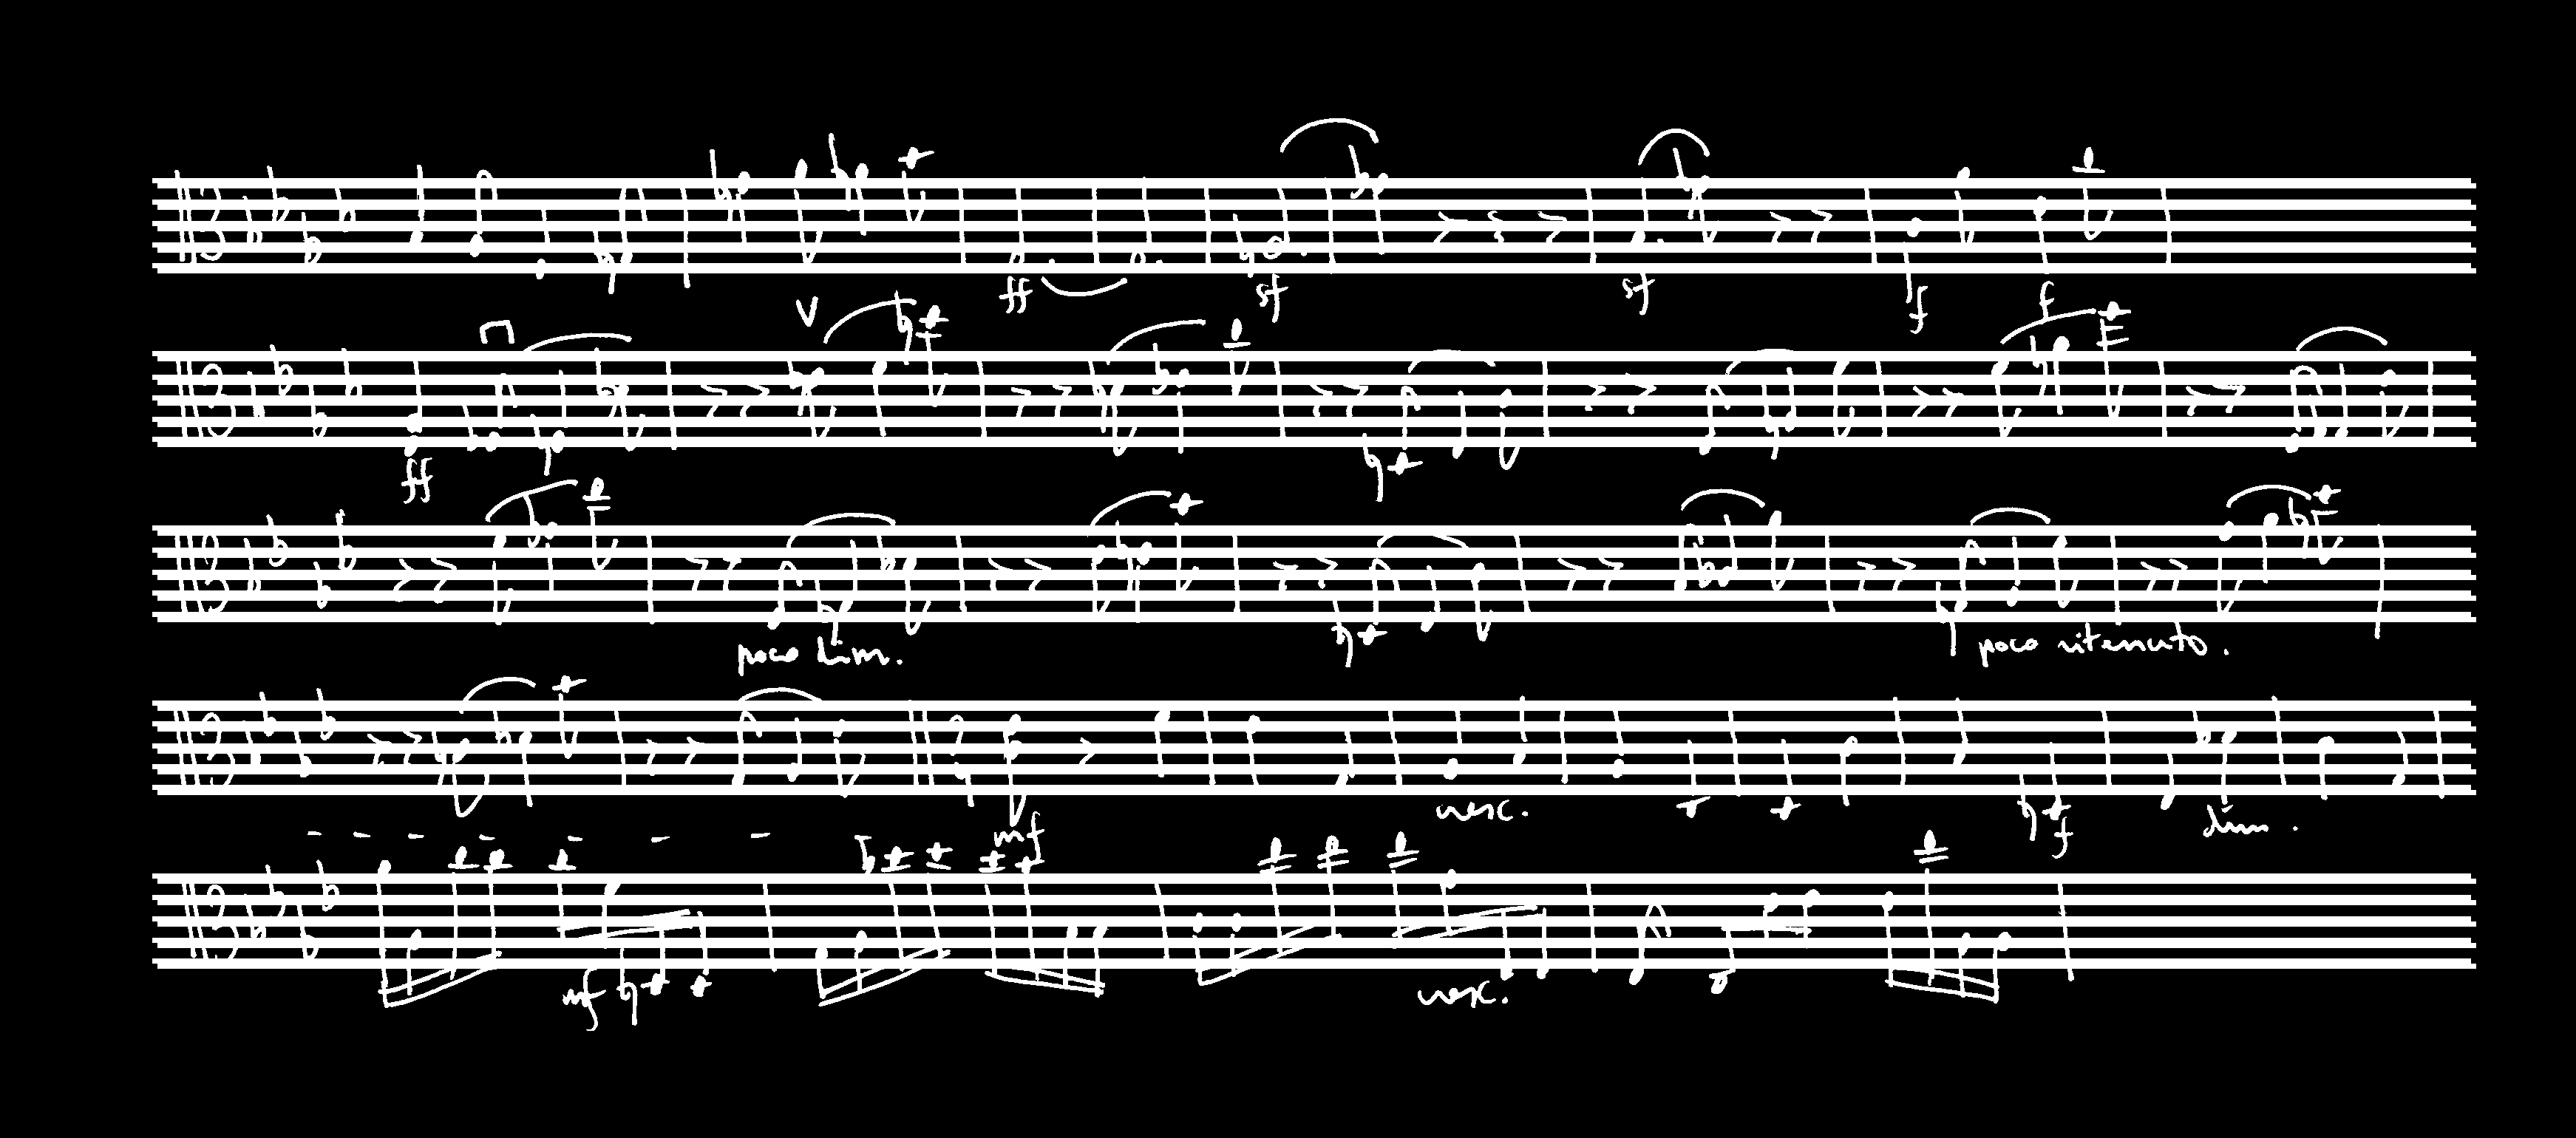 ff sf sf f f
V
ff
poco dim. poco ritenuto.
mf cresc. f dim.
mf cresc.